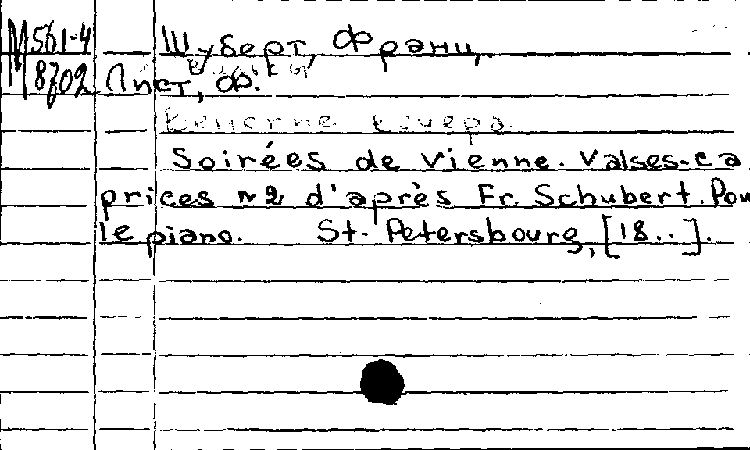 М561-4 Шуберт, Франц,
8702 Лист, Ф.
Венские вечера
Soirées de Vienne. Valses-ca
prices №2 d'après Fr. Schubert. Pou
le piano. St.-Petersbourg, [18..].